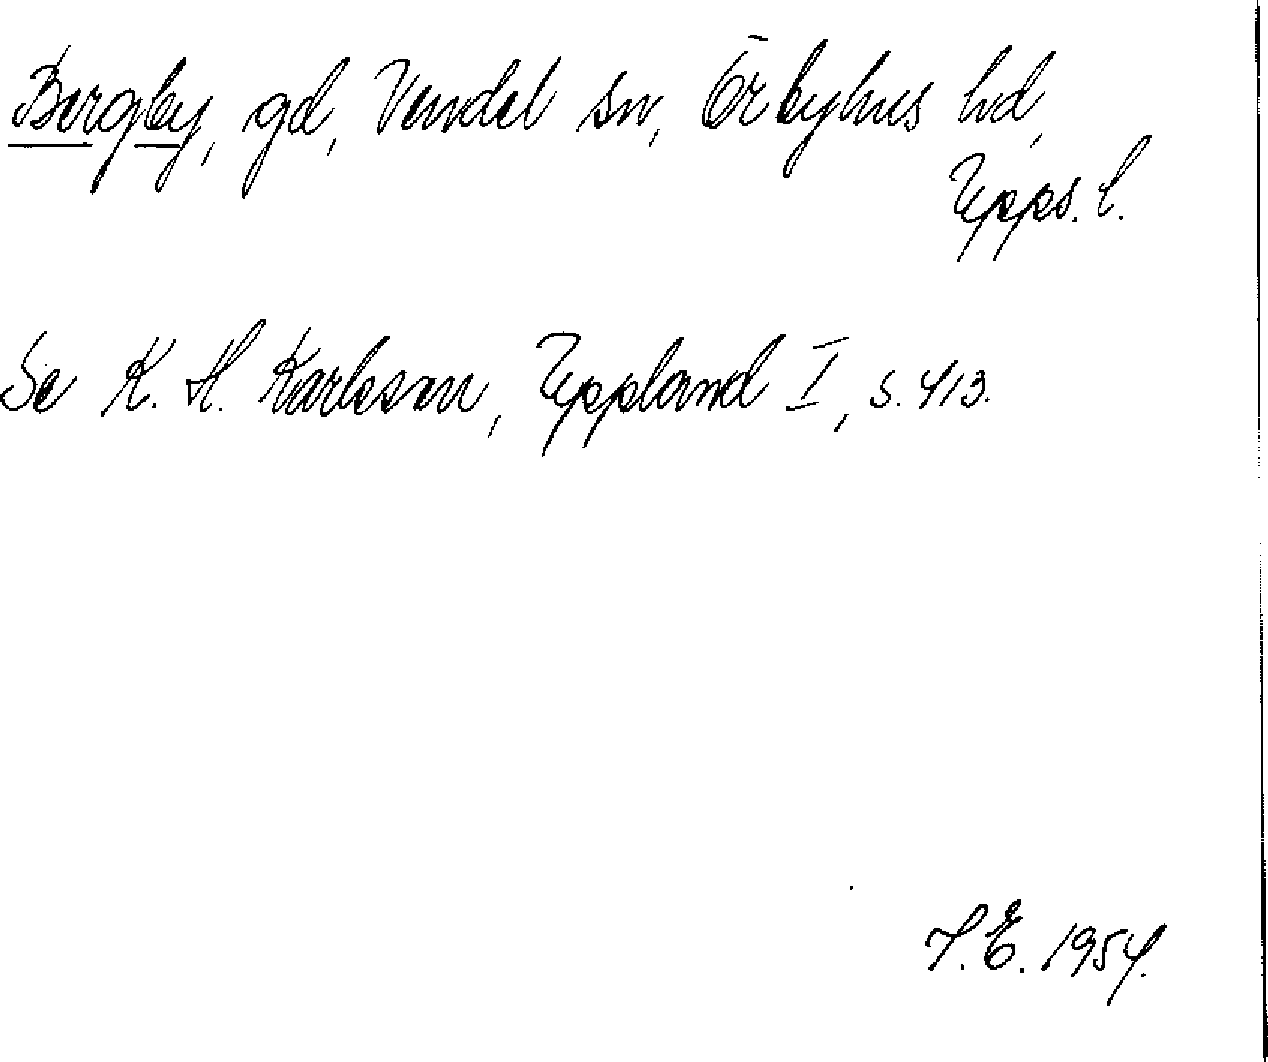 Bergby, gd, Vendel sn, Örbyhus hd,
Upps. l.
Se K. H. Karlsson, Uppland I, s. 413.
T.E. 1954.